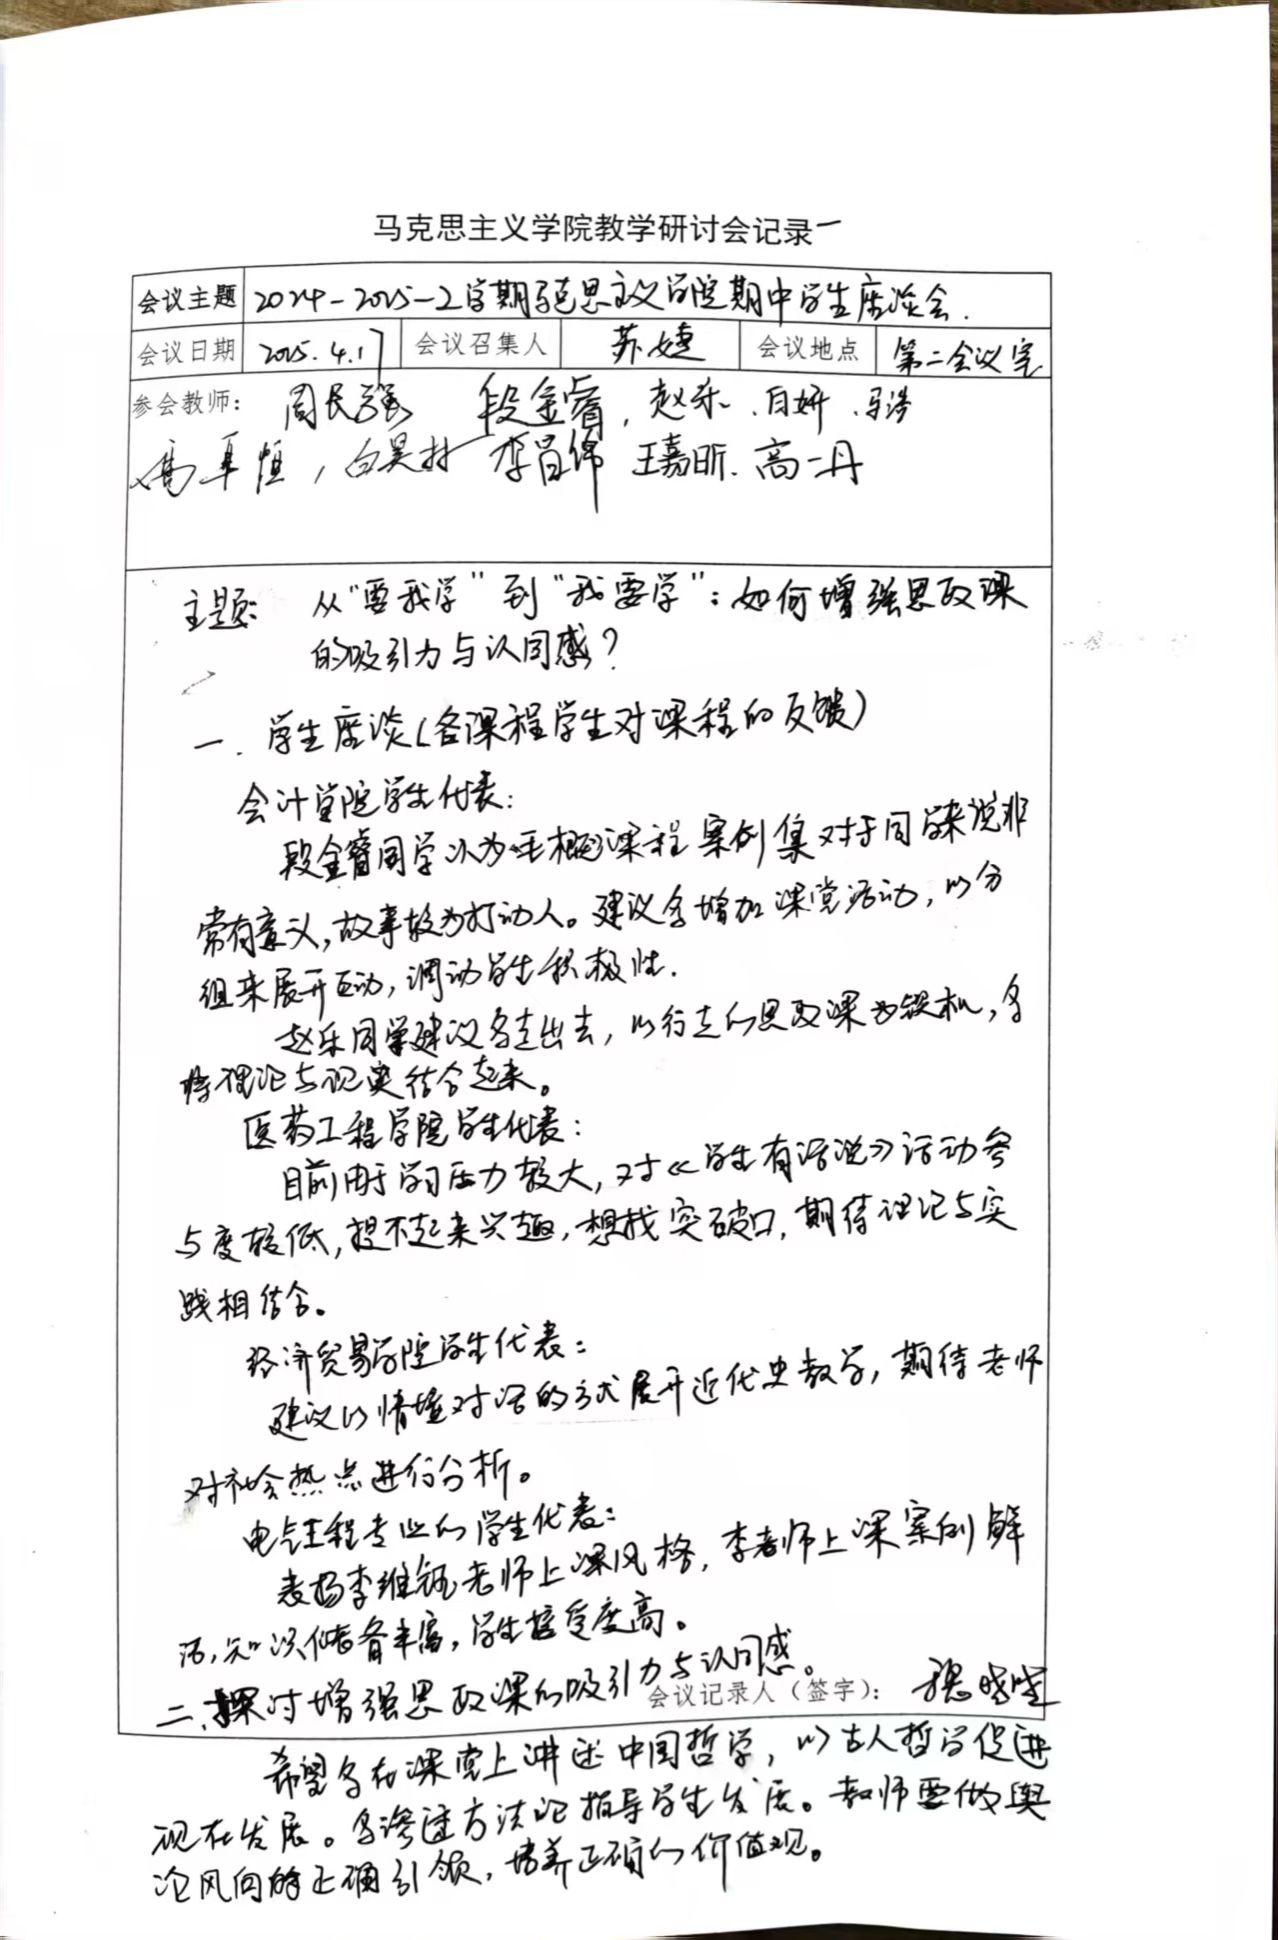 马克思主义学院教学研讨会记录一
会议主题 2024-2025-2学期马克思主义学院期中学生座谈会.
会议日期 2025.4.17 会议召集人 苏婕 会议地点 第二会议室
参会教师: 周长强 段金睿, 赵乐. 白妍. 马浩
高卓恒, 白昊村 李昌锦 王嘉昕. 高一丹
主题: 从"要我学"到"我要学":如何增强思政课
的吸引力与认同感?
一. 学生座谈(各课程学生对课程的反馈)
会计学院学生代表:
段金睿同学认为毛概课程案例集对于同学来说非
常有意义,故事较为打动人。建议多增加课堂活动,以分
组来展开互动,调动学生积极性.
赵乐同学建议多走出去,以行走的思政课为契机,多
将理论与现实结合起来。
医药工程学院学生代表:
目前由于学习压力较大,对《学生有话说》活动参
与度较低,提不起来兴趣,想找突破口,期待理论与实
践相结合。
经济贸易学院学生代表:
建议以情境对话的方式展开近代史教学,期待老师
对社会热点进行分析。
电气工程专业的学生代表:
表扬李维钰老师上课风格,李老师上课案例鲜
活,知识储备丰富,学生接受度高。
二. 探讨增强思政课的吸引力与认同感。
会议记录人(签字): 晓
希望多在课堂上讲述中国哲学,以古人哲学促进
现在发展。多渗透方法论指导学生发展。教师要做舆
论风向的正确引领,培养正确的价值观。